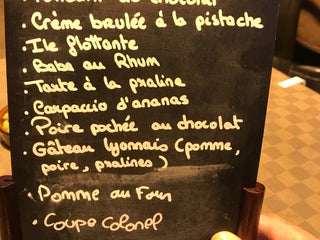 au chocolat
• Crème brulée à la pistache
• Ile flottante
• Baba au Rhum
• Tarte à la praline
• Carpaccio d'ananas
• Poire pochée au chocolat
• Gâteau lyonnais (pomme,
poire, pralines)
• Pomme au Four
• Coupe Colonel